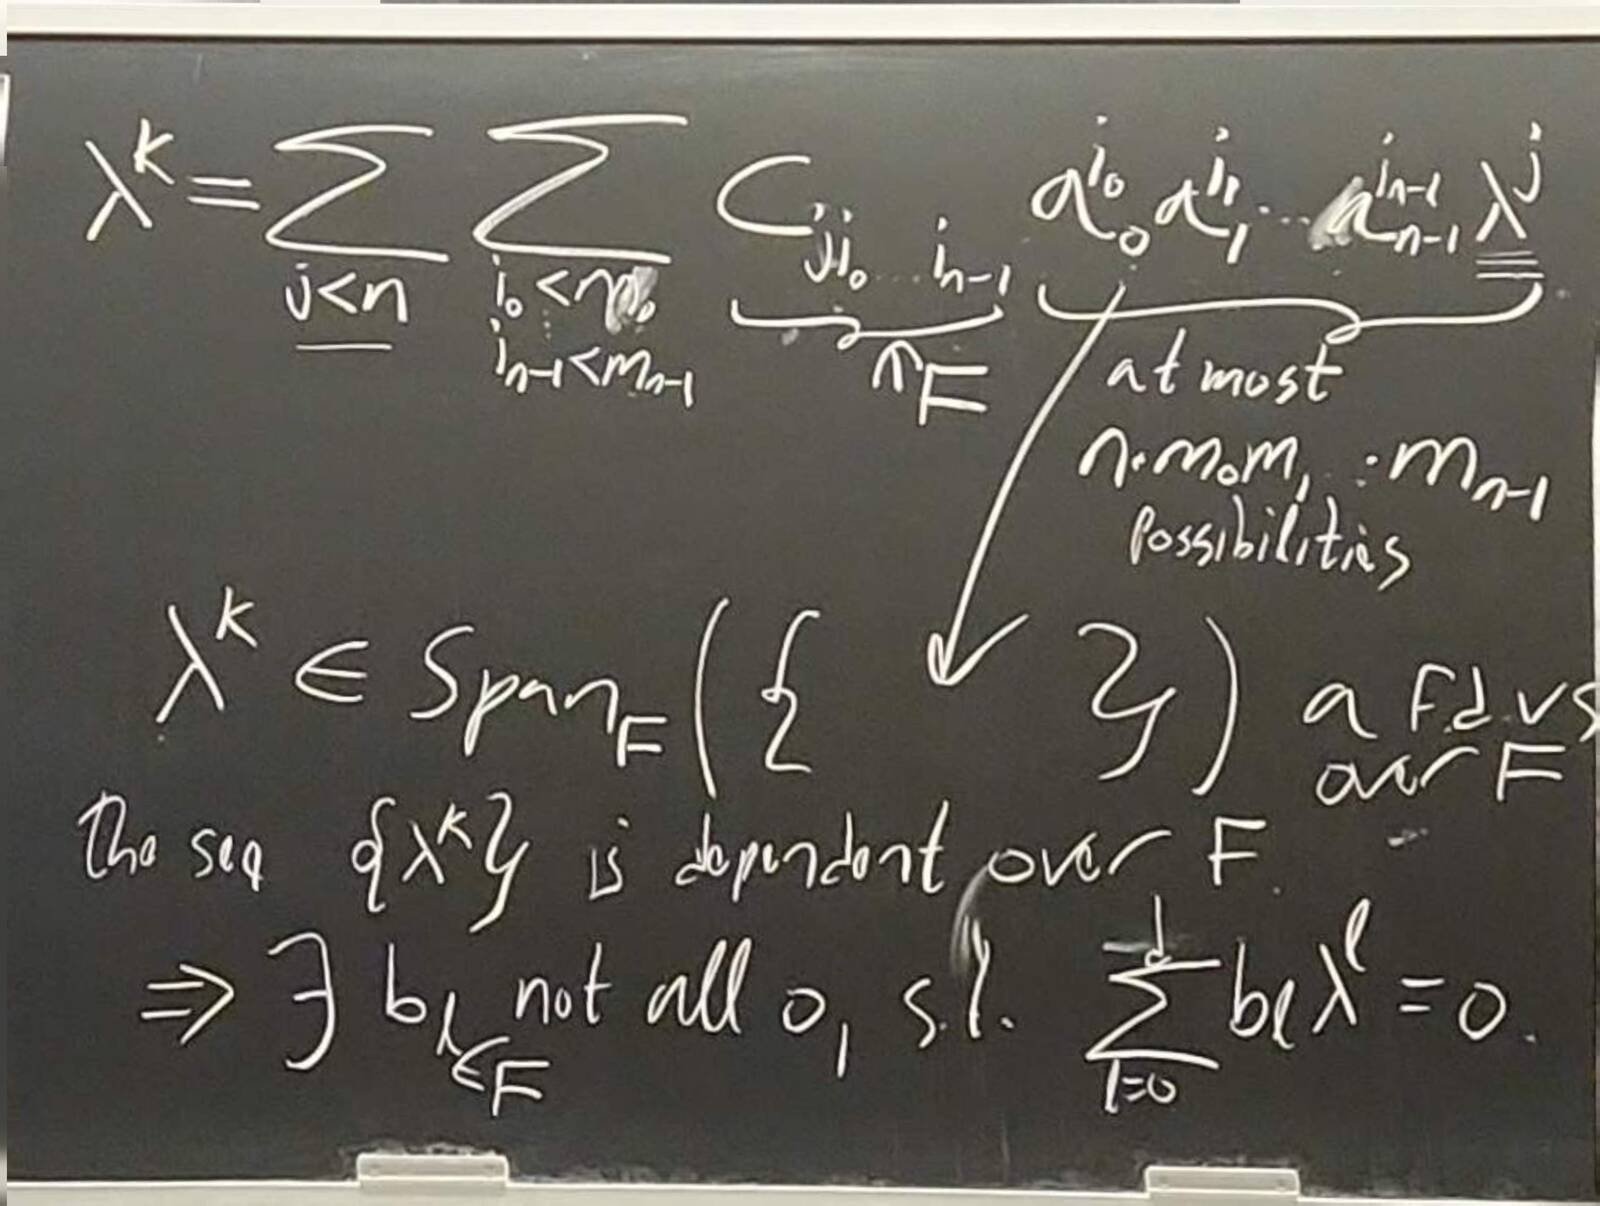 λ^k = Σ_{j<n} Σ_{i_0<m_0 ⋮ i_{n-1}<m_{n-1}} C_{j i_0 … i_{n-1}} a_0^{i_0} a_1^{i_1} ⋯ a_{n-1}^{i_{n-1}} λ^j
∈ F
at most
n·m_0 m_1 … ·m_{n-1}
possibilities
λ^k ∈ Span_F ({ }) a f.d. vs
over F
The seq {λ^k} is dependent over F.
⇒ ∃ b_l ∈ F not all 0, s.t. Σ_{l=0}^{d} b_l λ^l = 0.